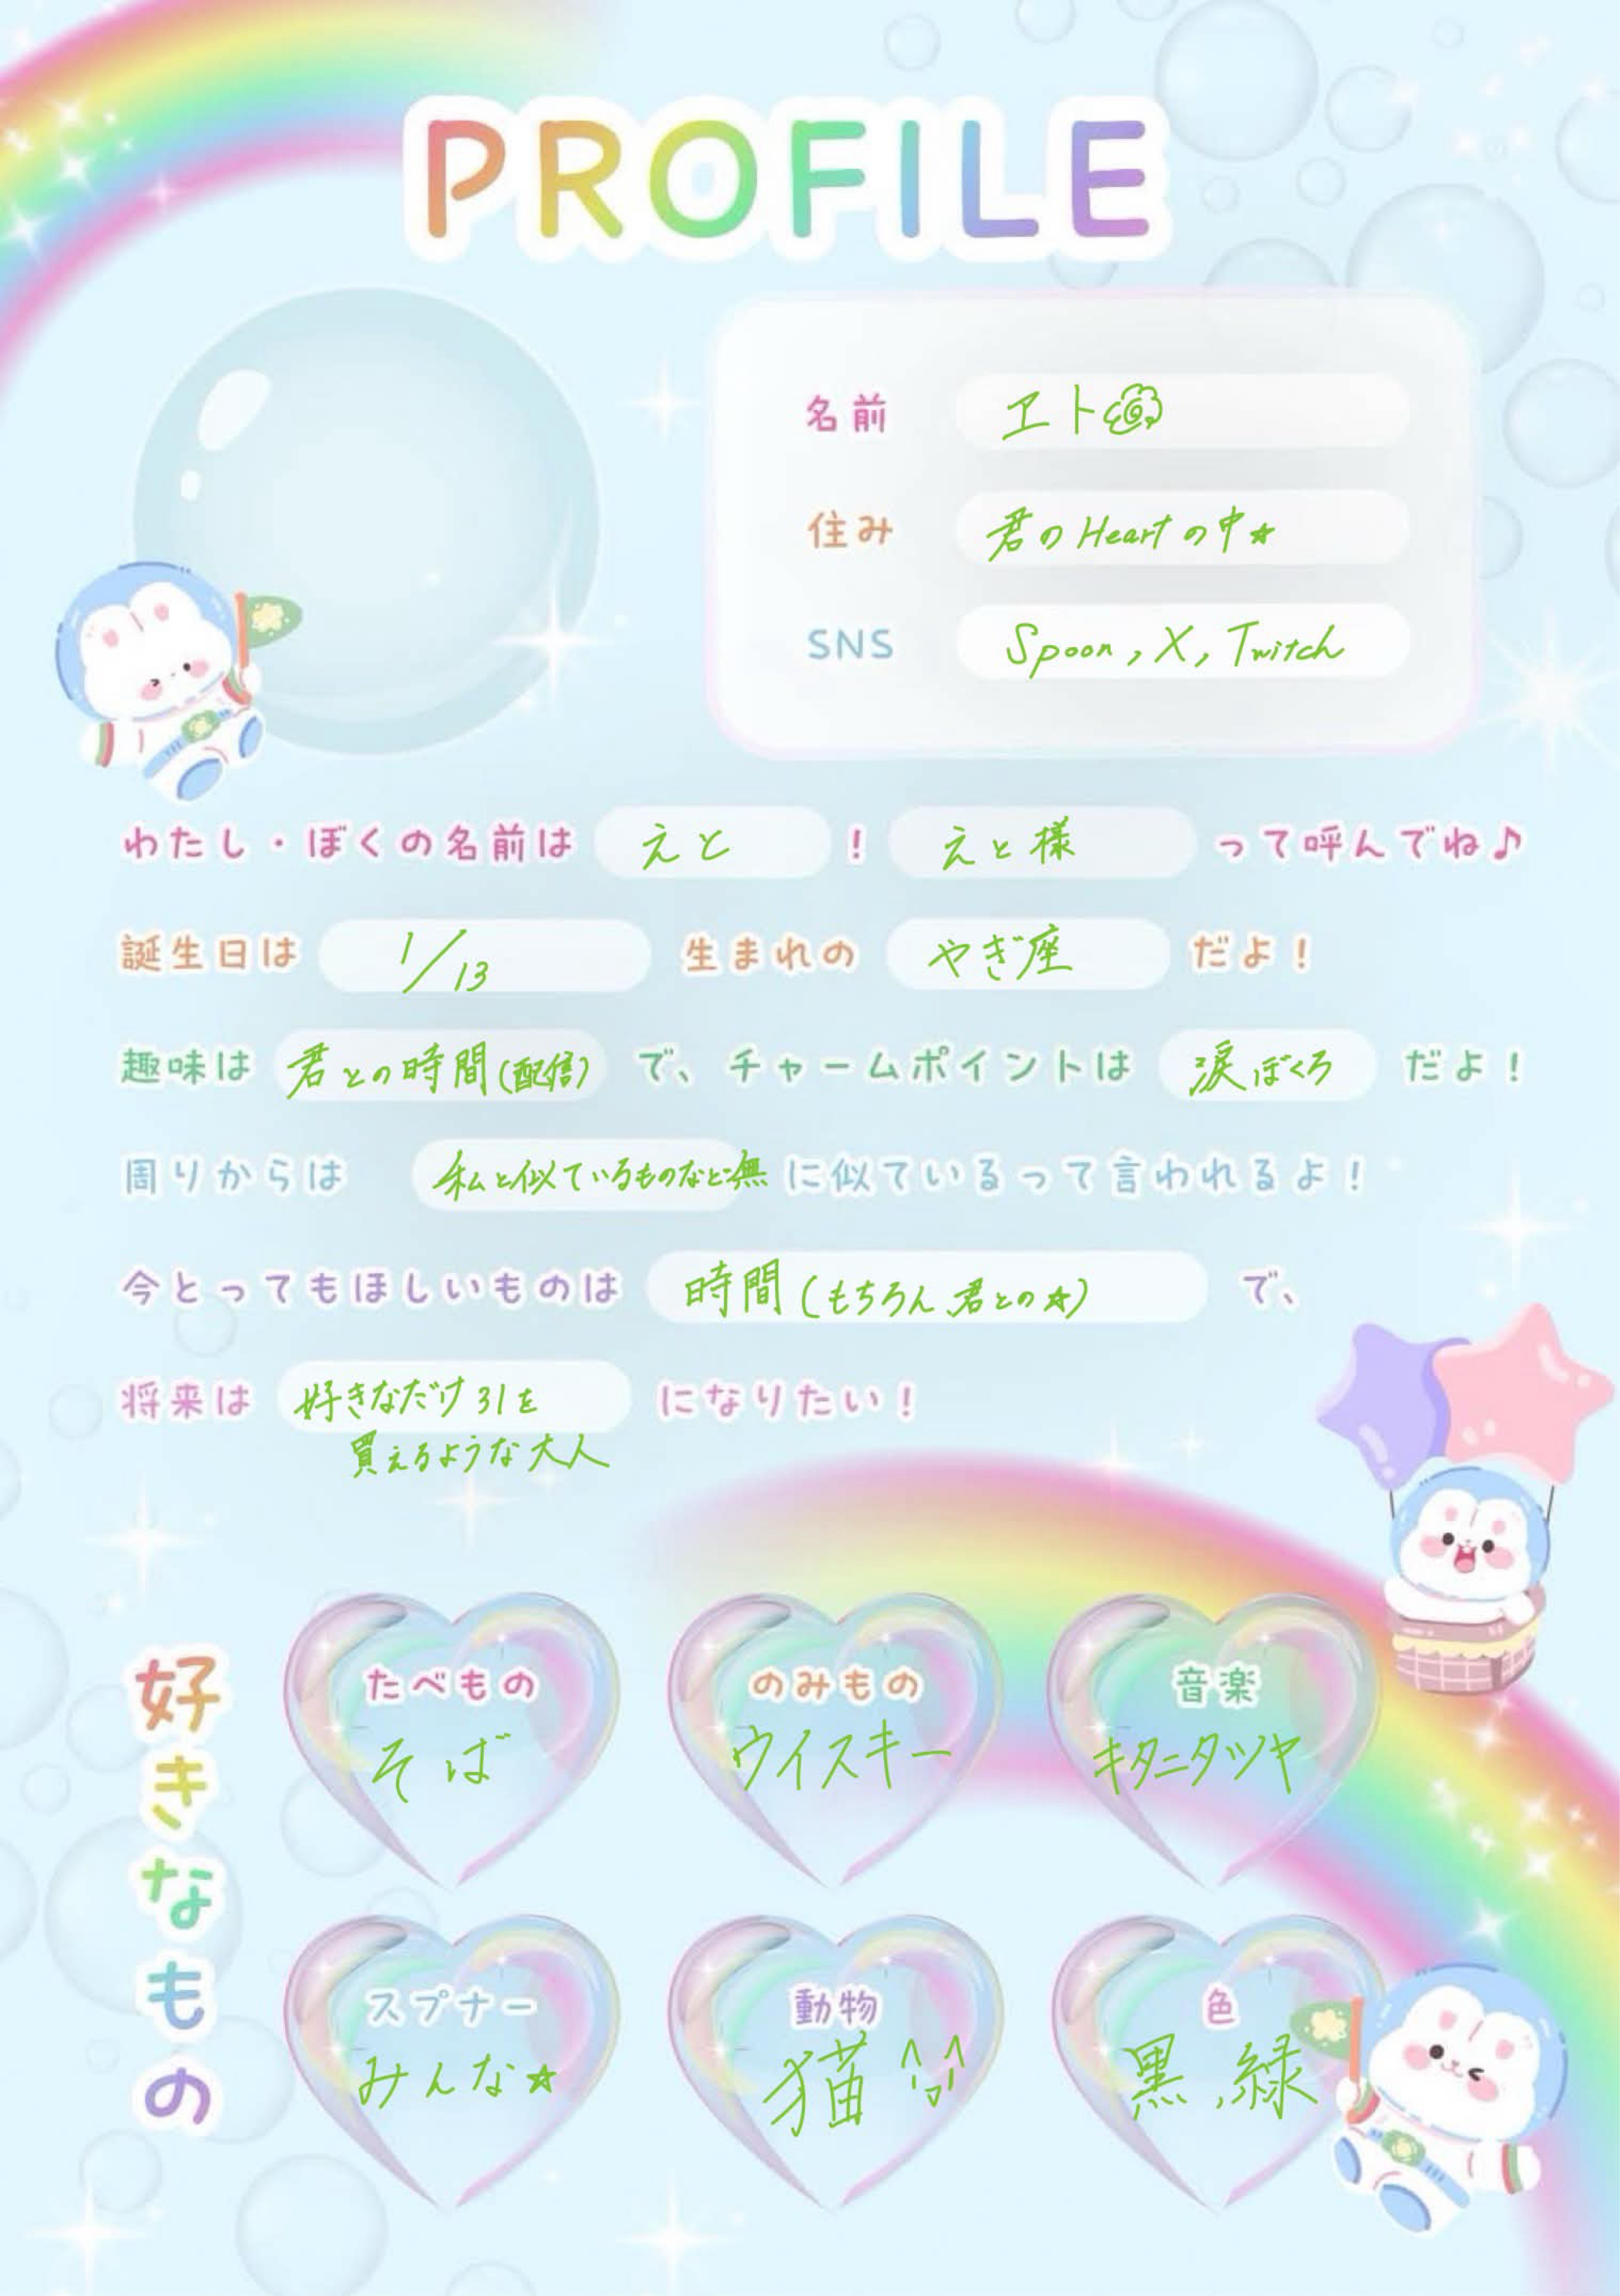 PROFILE
名前 ヱト
住み 君のHeartの中☆
SNS Spoon, X, Twitch
わたし・ぼくの名前は えと ! えと様 って呼んでね♪
誕生日は 1/13 生まれの やぎ座 だよ!
趣味は 君との時間(配信) で、チャームポイントは 涙ぼくろ だよ!
周りからは 私と似ているものなど無 に似ているって言われるよ!
今とってもほしいものは 時間(もちろん、君との☆) で、
将来は 好きなだけ31を になりたい!
買えるような大人
好きなもの
たべもの のみもの 音楽
そば ウイスキー キタニタツヤ
スプナー 動物 色
みんな☆ 猫 黒,緑